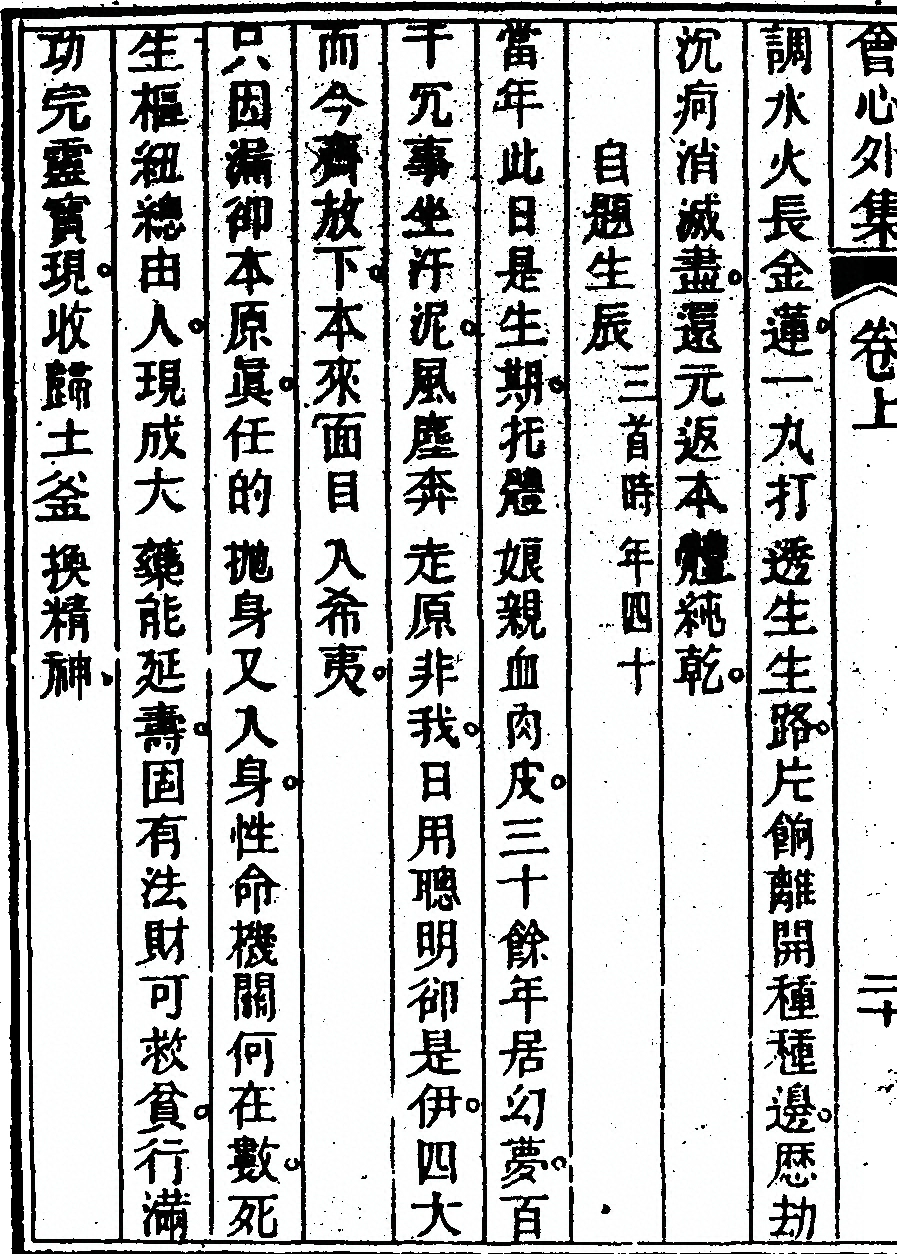 會心外集 卷上 二十
調水火長金蓮一丸打透生生路片餉離開種種邊歷劫
沉疴消滅盡還元返本體純乾
自題生辰三首時年四十
當年此日是生期托體娘親血肉皮三十餘年居幻夢百
千冗事坐汗泥風塵奔走原非我日用聰明卻是伊四大
而今齊放下本來面目入希夷
只因漏卻本原眞任的拋身又入身性命機關何在數死
生樞紐總由人現成大藥能延壽固有法財可救貧行滿
功完靈寶現收歸土釜換精神